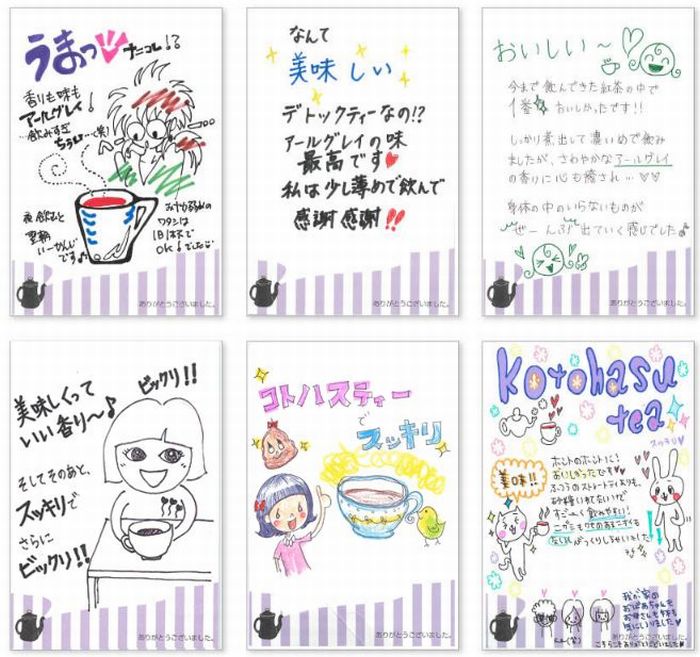 うまっ ナニコレ!?
香りも味も
アールグレイ!
…飲みすぎ
ちゃう…(笑)
夜飲むと
翌朝
いーかんじ
です♪
ワタシは
1日1本で
OK!でした
ありがとうございました。
なんて
美味しい
デトックティーなの!?
アールグレイの味
最高です♥
私は少し薄めで飲んで
感謝感謝!!
ありがとうございました。
おいしい〜♡
今まで飲んできた紅茶の中で
1番おいしかったです!!
しっかり煮出して濃いめで飲み
ましたが、さわやかなアールグレイ
の香りに心も癒され…♡♡
身体の中のいらないものが
ぜーんぶ出ていく感じでした♪
ありがとうございました。
美味しくって
いい香り〜♪
ビックリ!!
そしてそのあと、
スッキリで
さらに
ビックリ!!
ありがとうございました。
コトハスティー
で
スッキリ
ありがとうございました。
Kotohasu
tea
スッキリ
美味!!
ホントのホントに!
おいしかったです♥
ふつうのストレートティよりも、
砂糖いれてないので
すごーく飲みやすい!
我が家の
おばあちゃんも
お母さんも妹も
気にいりました♥
ありがとうございました。